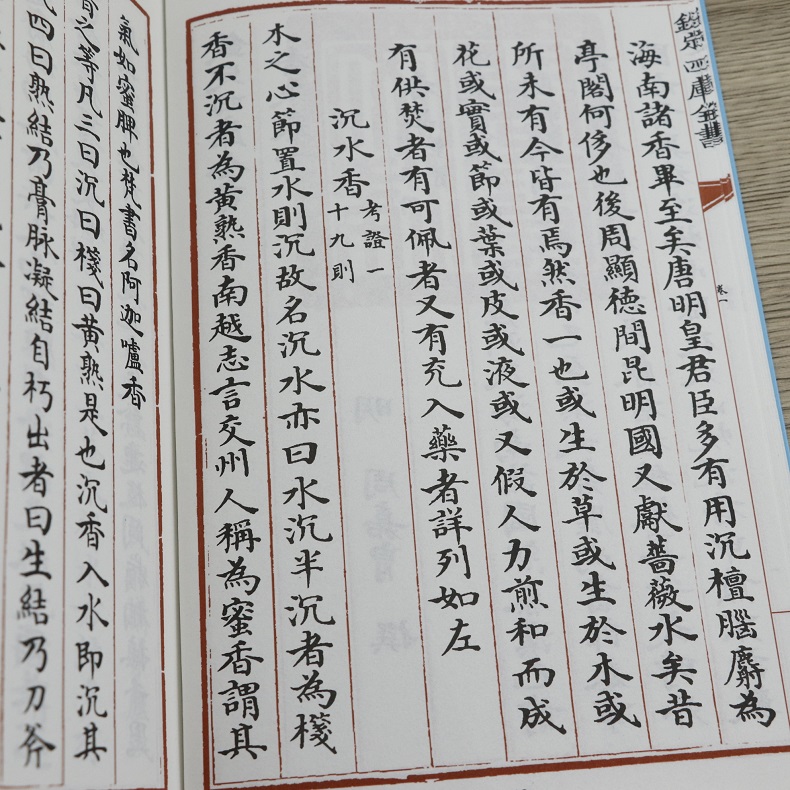 欽定四庫全書
卷一
海南諸香畢至矣唐明皇君臣多有用沉檀腦麝為
亭閣何侈也後周顯德間昆明國又獻薔薇水矣昔
所未有今皆有焉然香一也或生於草或生於木或
花或實或節或葉或皮或液或又假人力煎和而成
有供焚者有可佩者又有充入藥者詳列如左
沉水香考證一十九則
木之心節置水則沉故名沉水亦曰水沉半沉者為棧
香不沉者為黃熟香南越志言交州人稱為蜜香謂其
氣如蜜脾也梵書名阿迦嚧香
香之等凡三曰沉曰棧曰黃熟是也沉香入水即沉其
四曰熟結乃膏脉凝結自朽出者曰生結乃刀斧